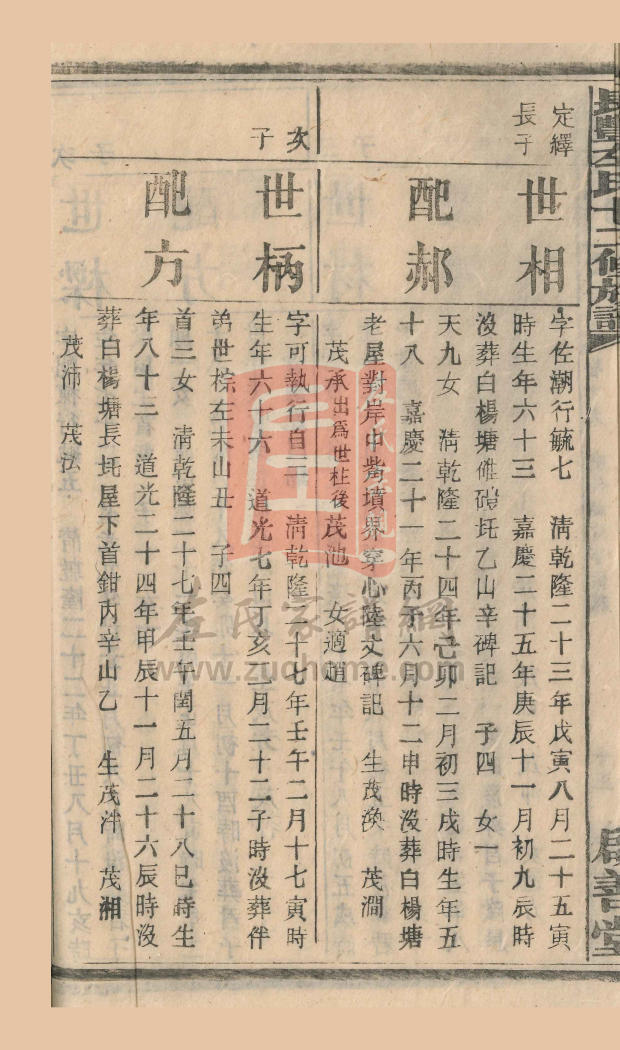 長豐左氏十二修族譜
啟善堂
定繹
長子
世相
字佐潮行毓七　清乾隆二十三年戊寅八月二十五寅
時生年六十三　嘉慶二十五年庚辰十一月初九辰時
沒葬白楊塘　乙山辛碑記　子四　女一
配郝
天九女　清乾隆二十四年己卯二月初三戌時生年五
十八　嘉慶二十一年丙子六月十二申時沒葬白楊塘
老屋對岸中觜墳界穿心陸丈碑記　生茂渙　茂澗
茂承出爲世柱後茂池　女適趙
次子
世柄
字可執行自二　清乾隆二十七年壬午二月十七寅時
生年六十六　道光七年丁亥二月二十二子時沒葬伴
弟世棕左未山丑　子四
配方
首三女　清乾隆二十七年壬午閏五月二十八巳時生
年八十三　道光二十四年甲辰十一月二十六辰時沒
葬白楊塘長坵屋下首鉗丙辛山乙　生茂泮　茂湘
茂沛　茂法
左氏家譜網
www.zuohome.com